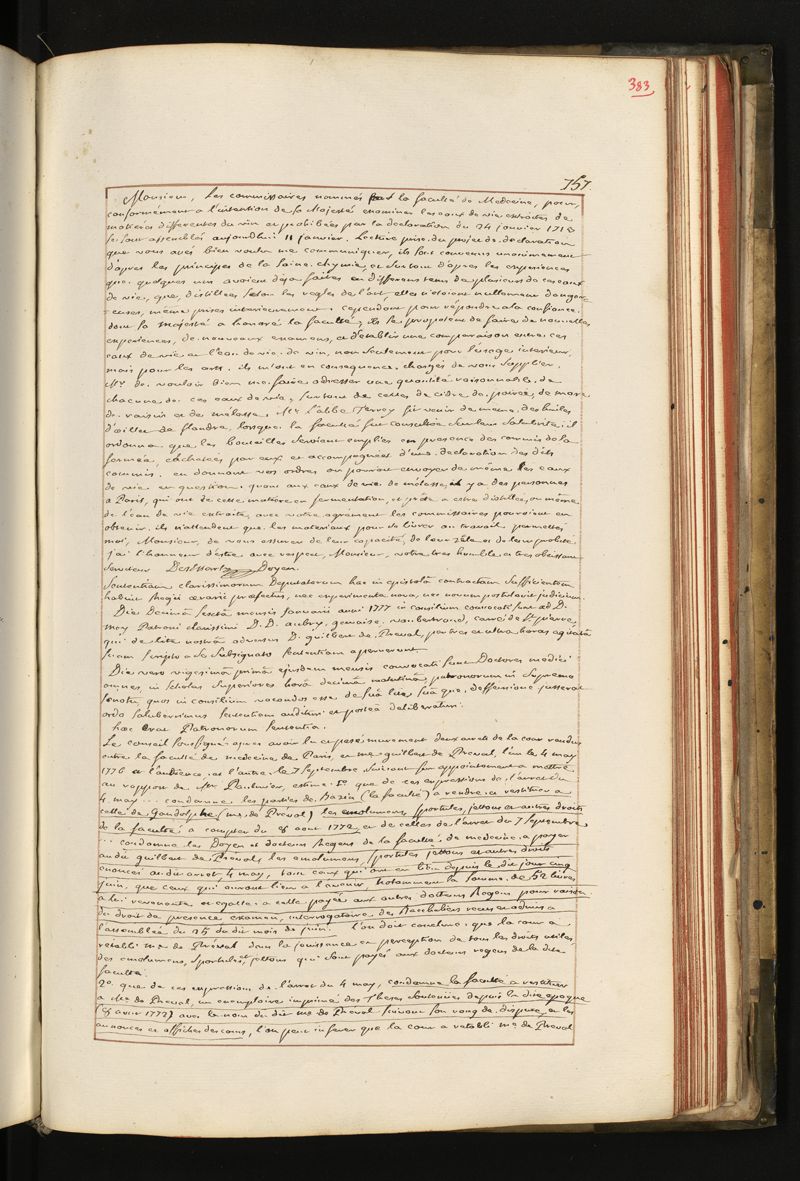 383
757.
Monsieur, Les commissaires nommés par la faculté de Medecine, pour,
conformément a l'intention de sa Majesté examiner les eaux de vie extraites de
matieres differentes du vin et prohibées par la declaration du 24 janvier 1713
se sont assemblés aujourdhui 11 janvier. Lecture prise du projet de declaration
que vous avés bien voulu me communiquer, ils sont convenus unanimement
d'après les principes de la saine chymie, et surtout d'après les experiences
que quelques uns avoient deja faites en differens tems de plusieurs de ces eaux
de vie, que, distillées selon les regles de l'art elles n'etoient nullement dange-
reuses, meme prises interieurement. cependant pour répondre a la confiance
dont sa Majesté a honoré la faculté, ils se proposent de faire de nouvelles
experiences, de nouveaux examens, et d'etablir une comparaison entre ces
eaux de vie et l'eau de vie de vin, non seulement pour l'usage interieur,
mais pour les arts. ils m'ont en consequence chargés de vous supplier,
Mr. de vouloir bien me faire adresser une quantité raisonnable de
chacune de ces eaux de vie, surtout de celles de cidre, de poirée, de marc
de raisin et de mélasse. Mr. L'abbé Terray fit venir de meme des huiles
d'œillet de flandre, lorsque la faculté fut consultée sur leur salubrité, il
ordonna que les bouteilles seroient emplies en presence des commis de la
ferme, cachetées par eux et accompagnées d'une declaration des dits
commis. en donnant vos ordres on pourroit envoyer de même les eaux
de vie en question. quant aux eaux de vie de mélasse, il y a des personnes
a Paris, qui ont de cette matiere en fermentation, et prête a estre distillée, ou même
de l'eau de vie extraite, avec votre agrément les commissaires pourroient en
obtenir. ils n'attendent que les materiaux pour se livrer au travail. permettés
moi, Monsieur, de vous assurer de leur capacité, de leur zèle et de leur probité.
j'ai l'honneur d'estre avec respect, Monsieur, votre tres humble et tres obeissant
serviteur DesEssartz Doyen.
Sententiam clarissimorum Deputatorum hac in epistolâ contractam sufficientem
habuit Regii aerarii praefectus, nec experimenta nova, nec novum postulavit judicium.
Die Decimâ sextâ mensis Januarii anni 1777 in consilium convocati sunt ad D.
May Patroni clarissimi D.D. aubry, gervaise, vaubertrand, carré de St. pierre,
qui de lite nostrâ adversus D. guilbert de Preval, per tres et ultra horas agitatâ
suam scripto a se subsignato sententiam aperuerunt.
Die vero vigesimâ primâ ejusdem mensis convocati sunt Doctores medici
omnes, in scholas superiores horâ decimâ matutinâ patronorum in supremo
senatu, quos in consilium vocandos esse de suâ lite suâ que deffensione jusserat
ordo saluberrimus sententiam audituri et posteà deliberaturi.
hæc erat Patronorum sententia.
Le Conseil soussigné après avoir lu et pesé murement deux arrets de la cour rendus
entre la faculté de medecine de Paris, et me guilbert de Preval, l'un le 4 may
1776 et l'audience, et l'autre le 7 septembre suivant sur appointement a mettre
au rapport de Mr. Pasquier, estime 1°. que de ces expressions de l'arret du
4 may ... condamne les parties de Bazin (la faculté) a rendre et restituer a
celle de Gandolphe (me. de Preval) les emolumens, sportules, jettons et autres droits
de la faculté a compter du 8 aout 1772, et de celles de l'arret du 7 Septembre
... condamne les Doyen et docteurs Regens de la faculté de medecine a payer
au dit guilbert de Preval, les emolumens, sportules, jettons et autres droits
enoncés au dit arret 4 may, tant ceux qui ont eu lieu depuis le dit jour cinq
juin, que ceux qui auront lieu a l'avenir notamment la somme de 52 livres
a lui revenante, et egalle a celle payée aux autres docteurs Regens pour raison
du droit de presence examen, interrogatoire des Bacheliers reçus et admis a
l'assemblée du 25 du dit mois de juin. l'on doit conclure que la cour a
retabli me. de Preval dans la jouissance et perception de tous les droits utiles,
des emolumens, sportules et jettons qui sont payés aux docteurs regens de la dite
faculté.
2°. que de ces expressions de l'arret du 4 may, condamne la faculté a restituer
a me. de Preval, un exemplaire imprimé des Theses soutenues depuis la dite epoque
(8 aout 1772) avec le nom du dit me de Preval suivant son rang de dispute, et les
annonces et affiches des cours, l'on peut inferer que la cour a retabli me. de Preval